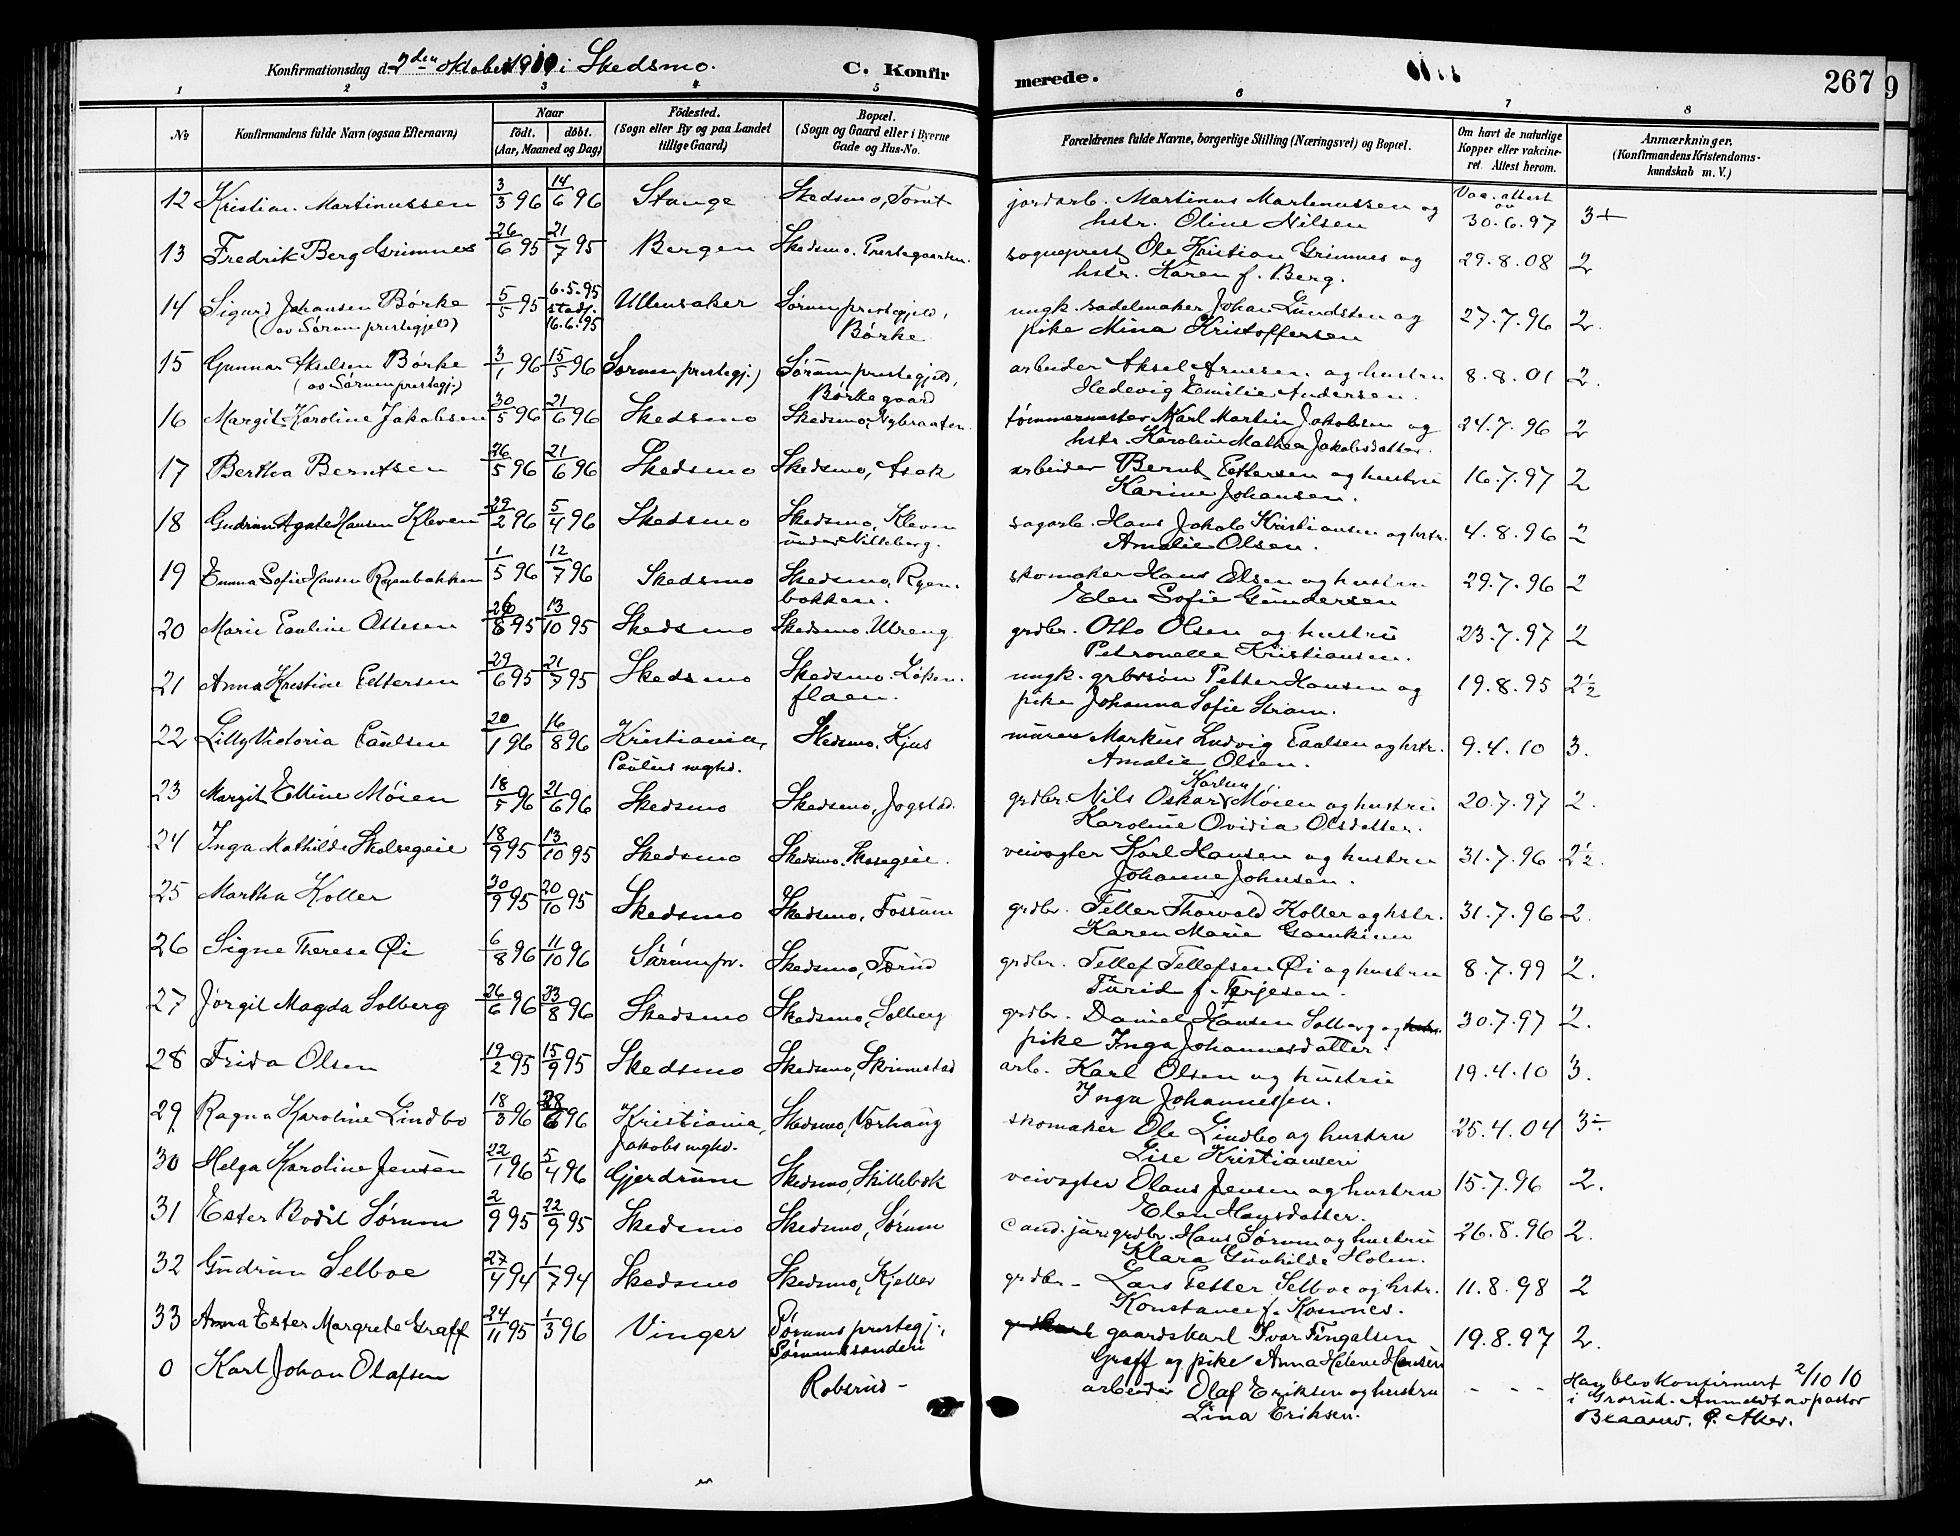 Konfirmationsdag d. 2den oktober 1910 i Skedsmo. C. Konfirmerede. 267
1 2 3 4 5 6 7 8
No Konfirmandens fulde Navn (ogsaa Efternavn) Naar födt. döbt. (Aar, Maaned og Dag) Födested. (Sogn eller By og paa Landet tillige Gaard) Bopæl. (Sogn og Gaard eller i Byerne Gade og Hus-No. Forældrenes fulde Navne, borgerlige Stilling (Næringsvei) og Bopæl. Om havt de naturlige Kopper eller vakcineret. Attest herom. Anmærkninger. (Konfirmandens Kristendomskundskab m. V.)
12 Kristian Martinussen 3/3 96 14/6 96 Stange Skedsmo, Tomt jordarb. Martinus Martinussen og hstr. Oline Nilsen Vac. attest av 30.6.97 3+
13 Fredrik Berg Grimnes 26/6 95 21/7 95 Bergen Skedsmo. Prestegaarden. sogneprest Ole Kristian Grimnes og hstr. Karen f. Berg. 29.8.08 2
14 Sigurd Johansen Börke (av Sørum prestegjeld) 5/5 95 6.5.95 stadf. 16.6.95 Ullensaker Sørum prestegjeld, Børke ungk. sadelmaker Johan Lundsten og pike Mina Kristoffersen 27.7.96 2.
15 Gunnar Akselsen Børke (av Sørum prestegj.) 3/1 96 15/5 96 Sørum prestegj.) Sørum prestegjeld, Børke gaard arbeider Aksel Arnesen og hustru Hedevig Emilie Andersen. 8.8.01 2.
16 Margit Karoline Jakobsen 30/5 96 21/6 96 Skedsmo Skedsmo, Nybraaten tømmermester Karl Martin Jakobsen og hstr. Karoline Mathea Jakobsdatter. 24.7.96 2
17 Bertha Berntsen 26/5 96 21/6 96 Skedsmo Skedsmo, Asak arbeider Bernt Pettersen og hustru Karine Johansen. 16.7.97 2
18 Gudrun Agate Hansen Kleven 29/2 96 5/4 96 Skedsmo Skedsmo, Kleven under Nitteberg. sagarb. Hans Jakob Kristiansen og hstr. Amalie Olsen. 4.8.96 2
19 Emma Sofie Hansen Ryenbakken 1/5 96 12/7 96 Skedsmo Skedsmo, Ryenbakken. skomaker Hans Olsen og hustru Elen Sofie Gundersen 29.7.96 2
20 Marie Pauline Ottesen 26/8 95 13/10 95 Skedsmo Skedsmo. Ulreng grdbr. Otto Olsen og hustru Petronelle Kristiansen. 23.7.97 2
21 Anna Kristine Pettersen 29/6 95 21/7 95 Skedsmo Skedsmo. Løkenflaen. ungk. grbrsøn Petter Hansen og pike Johanna Sofie Strøm. 19.8.95 2½
22 Lilly Victoria Paulsen 20/1 96 16/8 96 Kristiania, Paulus mghd. Skedsmo. Kjus murer Markus Ludvig Paulsen og hstr. Amalie Olsen. 9.4.10 3.
23 Margit Elline Moen 18/5 96 21/6 96 Skedsmo Skedsmo, Jogstad. grdbr. Nils Oskar Moen og hustru Karoline Ovidia Olsdatter. 20.7.97 2.
24 Inga Mathilde Skolsegeie 18/9 95 13/10 95 Skedsmo Skedsmo. veivogter Karl Hansen og hustru Johanne Johnsen. 31.7.96 2½.
25 Martha Koller 30/9 95 20/10 95 Skedsmo Skedsmo, Fossum grdbr. Teller Thorvald Koller og hstr. Karen Marie 31.7.96 2.
26 Signe Therese Øi 6/8 96 11/10 96 Sørum pr. Skedsmo, Tærud grdbr. Tellef Tellefsen Øi og hustru Turid f. Terjesen. 8.7.99 2.
27 Jørgil Magda Solberg 26/6 96 23/8 96 Skedsmo Skedsmo, Solberg grdbr. Daniel Hansen Solberg og hstr. pike Inga Johannesdatter. 30.7.97 2.
28 Frida Olsen 19/2 95 15/9 95 Skedsmo Skedsmo, Skrimstad arb. Karl Olsen og hustru Inga Johannessen. 19.4.10 3.
29 Ragna Karoline Lindbo 18/3 96 28/6 96 Kristiania, Jakobs mghd. Skedsmo, Værhaug skomaker Ole Lindbo og hustru Lise Kristiansen 25.4.04 3÷
30 Helga Karoline Jensen 22/1 96 5/4 96 Gjerdrum Skedsmo, Skillebæk veivogter Olaus Jensen og hustru Elen Hansdatter. 15.7.96 2.
31 Ester Bodil Sørum 2/9 95 22/9 95 Skedsmo Skedsmo, Sørum cand. jur. grdbr. Hans Sørum og hustru Klara Gunhilde Holm. 26.8.96 2.
32 Gudrun Selboe 27/4 94 1/7 94 Skedsmo Skedsmo, Kjeller grdbr - Lars Petter Selboe og hstr. Konstance f. Komnes. 11.8.98 2
33 Anna Ester Margrete Graff 24/11 95 1/3 96 Vinger Sørums prestegj., Sørumssanden gaardskarl Ivar Fingalsen Graff og pike Anna Helene Hansen 19.8.97 2.
0 Karl Johan Olafsen Robsrud - arbeider Olaf Eriksen og hustru Lina Eriksen. - - - Han blev konfirmert 2/10 10 i Grorud. Anmeldt av pastor Blaauw. Ø. Aker.